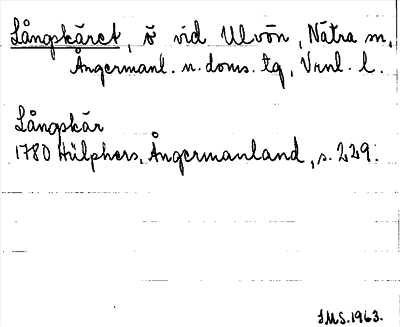 Långskäret, ö vid Ulvön, Nätra sn,
Ångermanl. n. doms. tg, Vrnl. l.
Långskär
1780 Hülphers, Ångermanland, s. 229.
IMS. 1963.